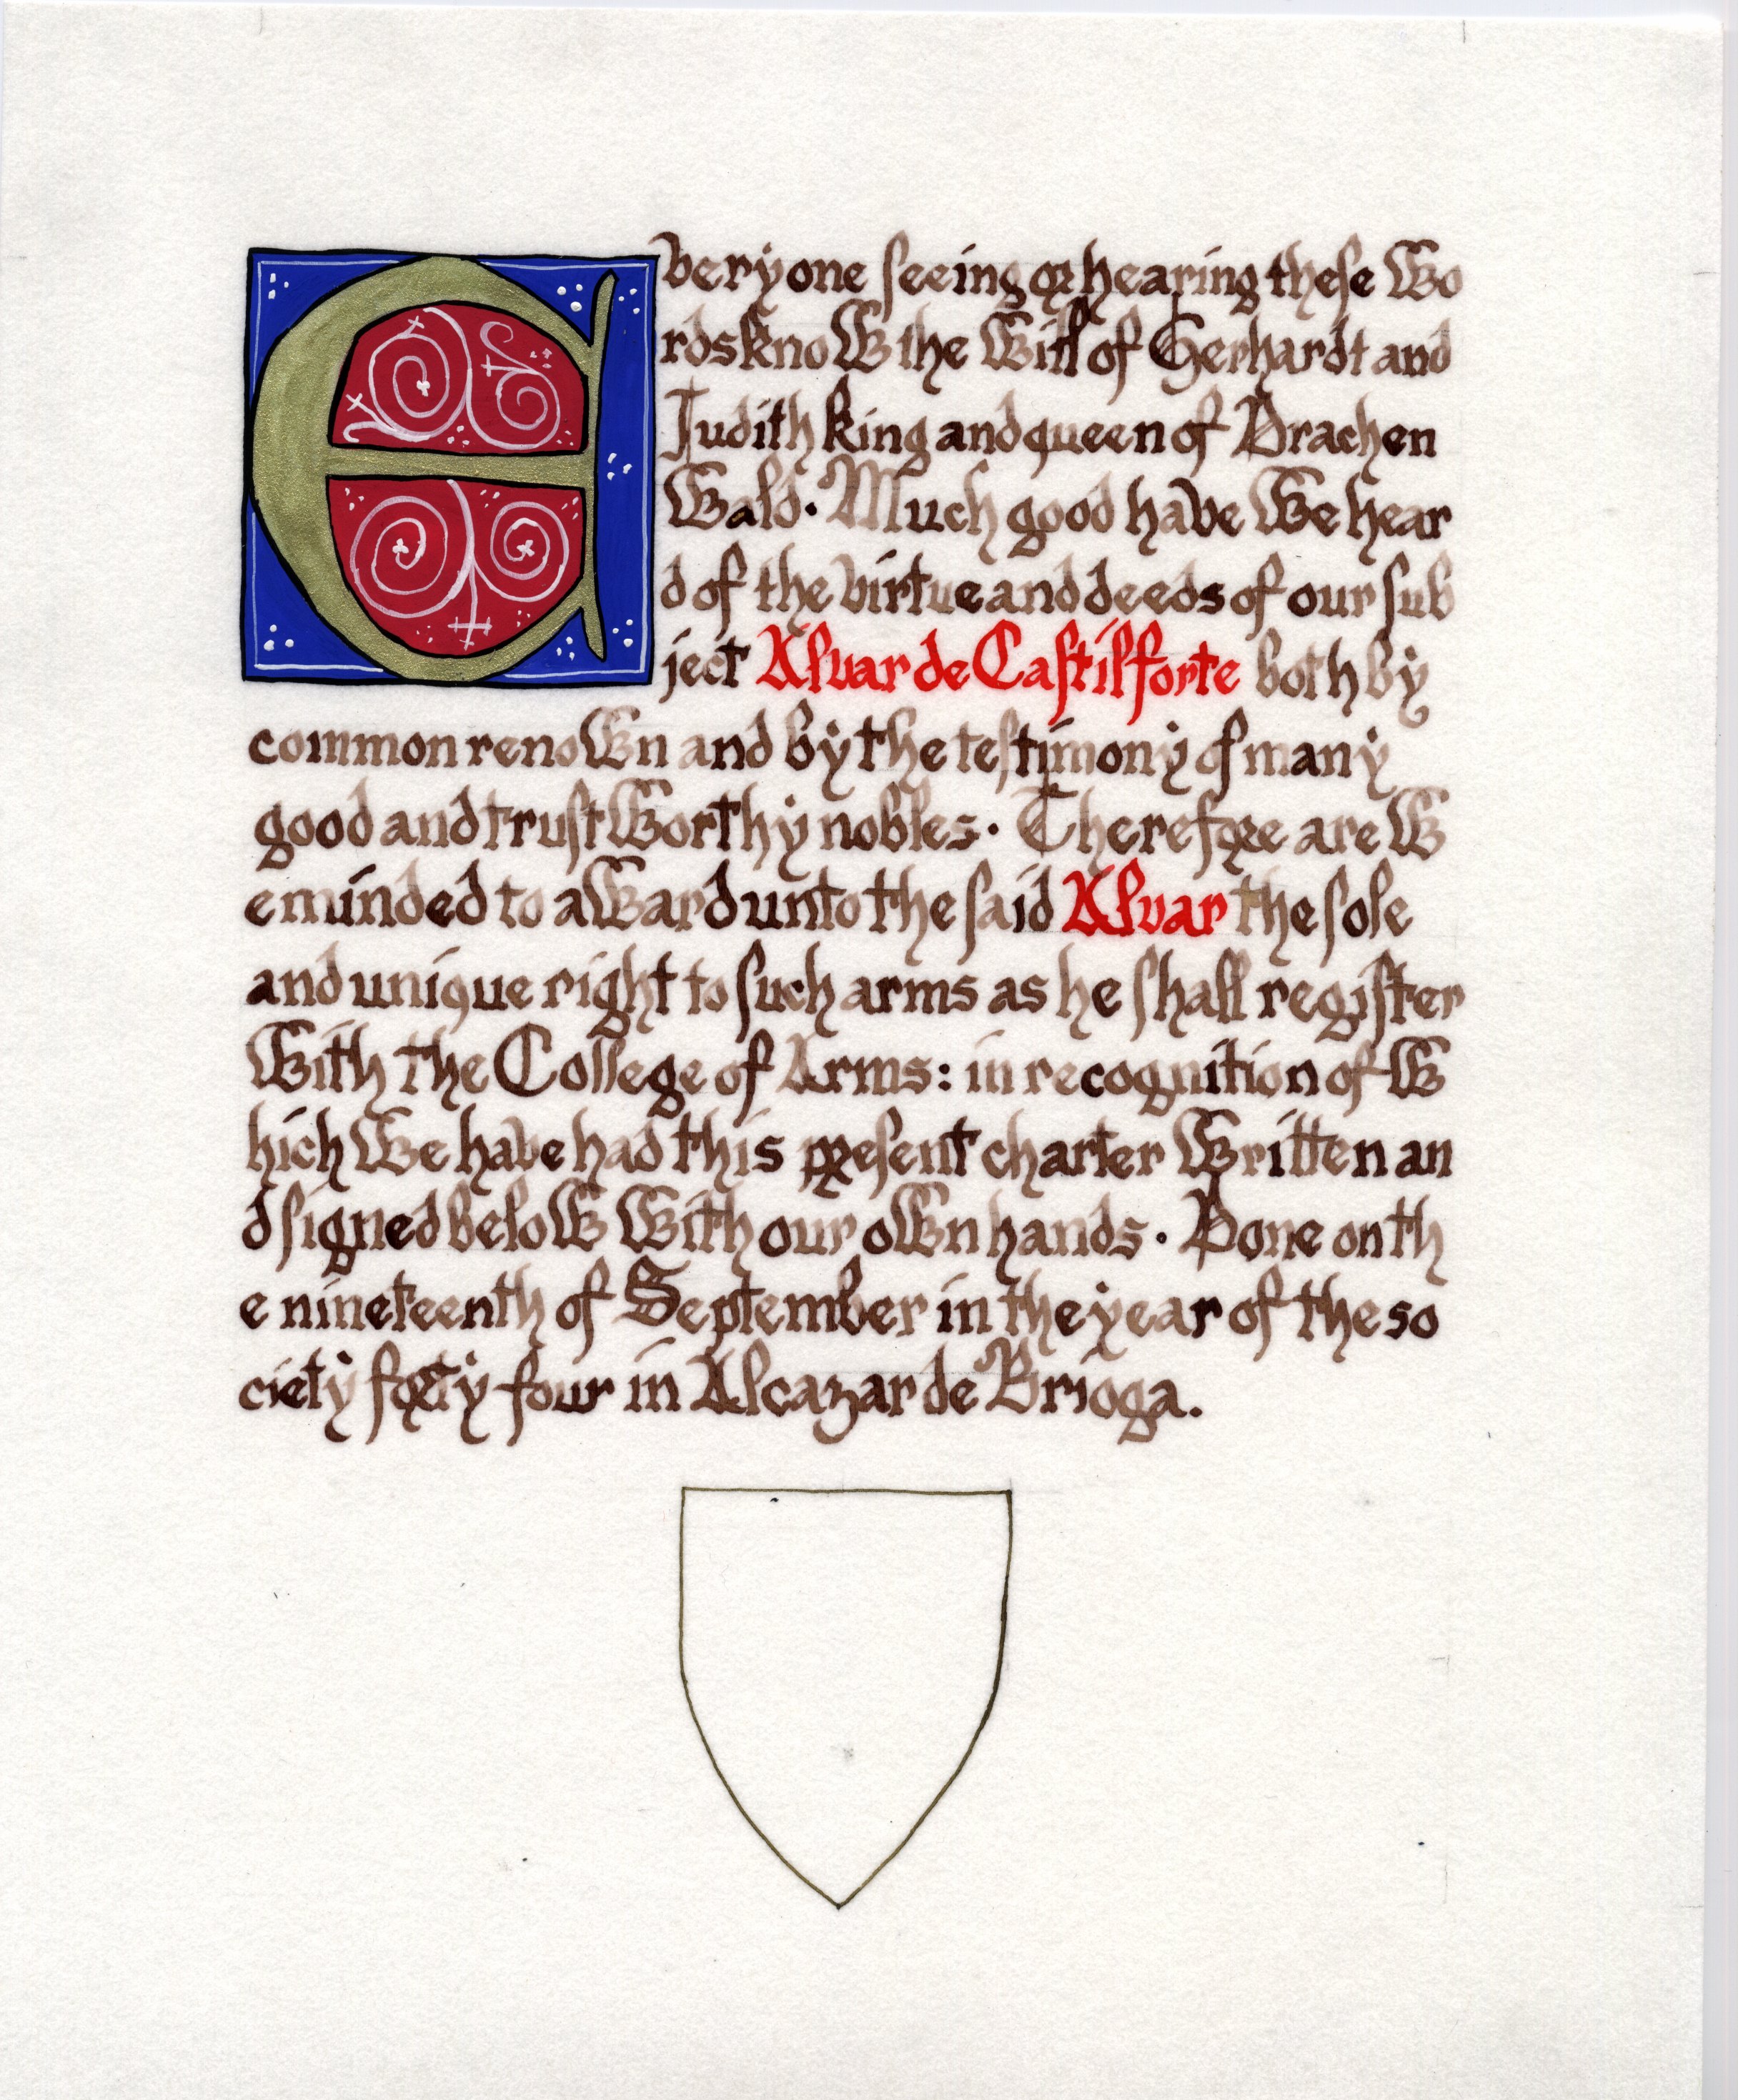 Everyone seeing or hearing these wo
rds know the will of Gerhardt and
Judith king and queen of Drachen
wald. Much good have we hear
d of the virtue and deeds of our sub
ject Alvar de Castilforte both by
common renown and by the testimony of many
good and trustworthy nobles. Therefore are w
e minded to award unto the said Alvar the sole
and unique right to such arms as he shall register
with the College of Arms: in recognition of w
hich we have had this present charter written an
d signed below with our own hands. Done on th
e nineteenth of September in the year of the so
ciety forty four in Alcazar de Brioga.